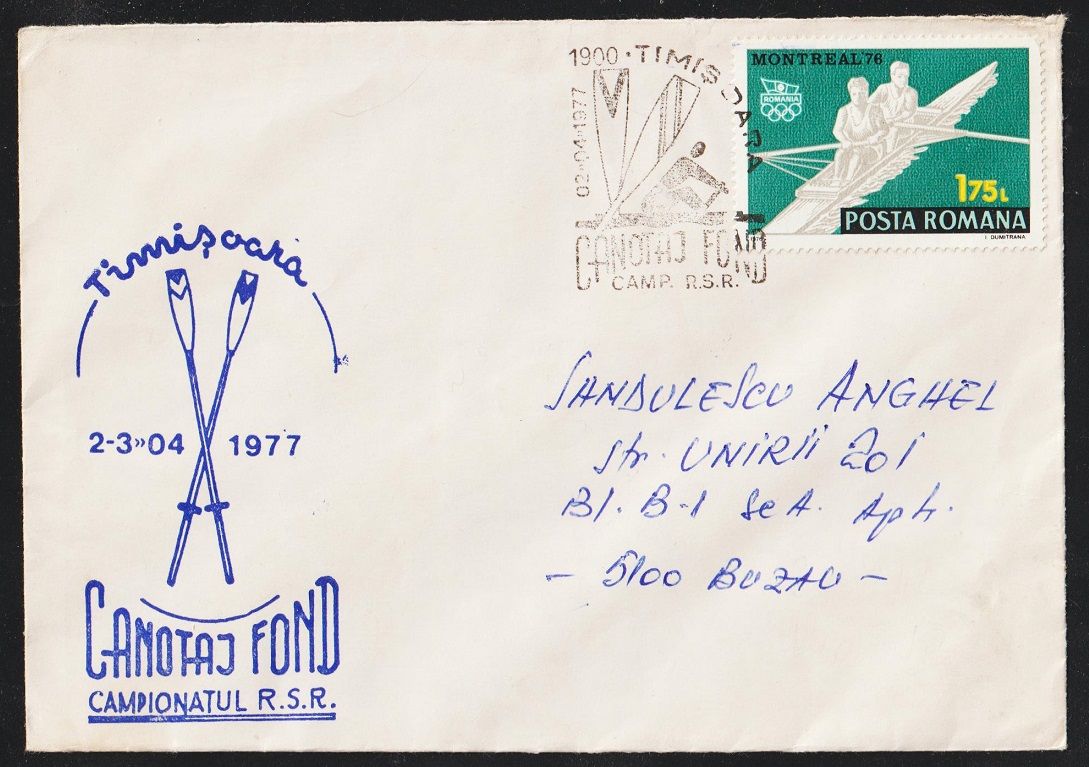 1900 · TIMIȘOARA
02·04·1977
CANOTAJ FOND
CAMP. R.S.R.
MONTREAL'76
ROMANIA
1.75L
POSTA ROMANA
I. DUMITRANA
Timișoara
2-3»04 1977
CANOTAJ FOND
CAMPIONATUL R.S.R.
SANDULESCU ANGHEL
Str. UNIRII 201
Bl. B-1 Sc A. Aptr.
- 5100 BUZAU -